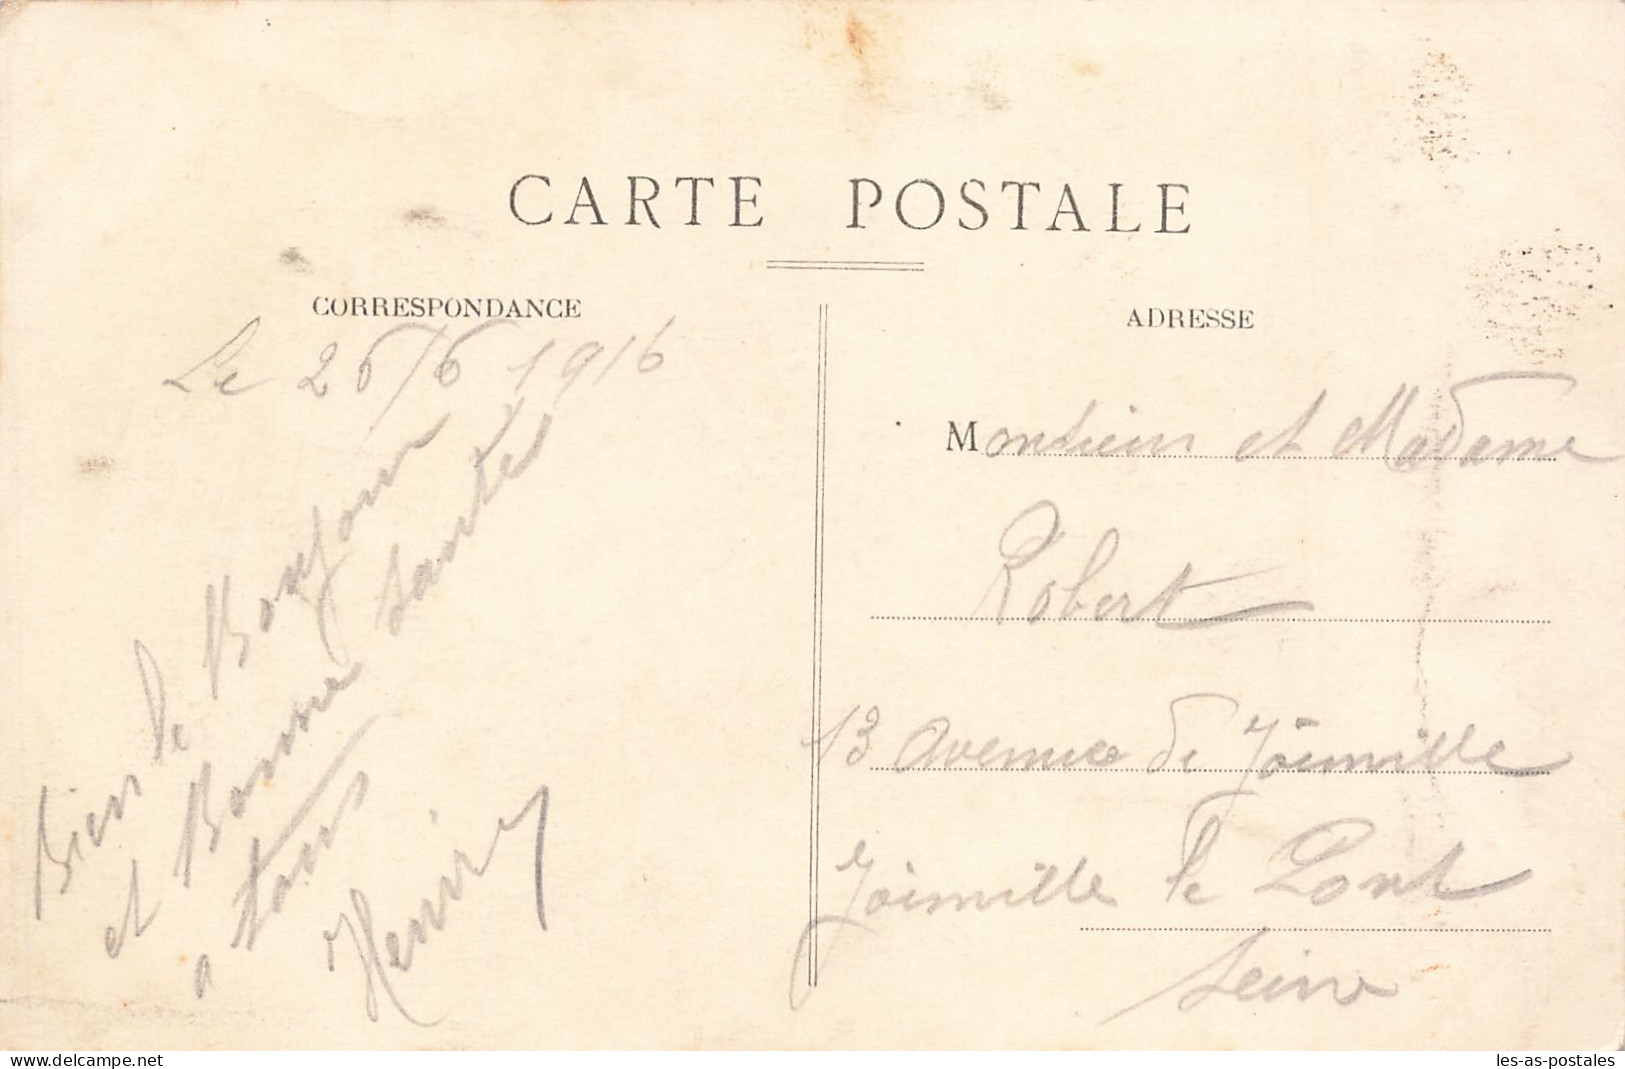 CARTE POSTALE
CORRESPONDANCE
Le 26/6 1916
Bien le Bonjour
et Bonne santés
a tous
Henry
ADRESSE
Monsieur et Madame
Robert
13 avenue de Joinville
Joinville le Pont
Seine
www.delcampe.net
les-as-postales